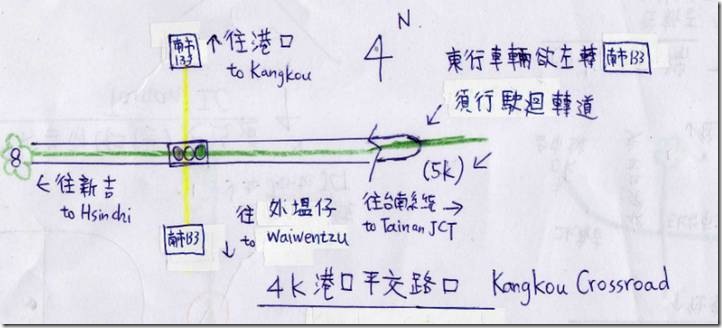 N.
南市
133
↑往港口
to Kangkou
東行車輛欲左轉 南市133
須行駛迴轉道
8
(5k)
←往新吉
to Hsinchi
往台南系統→
to Tainan JCT
南市133
往 外塭仔
↓to Waiwentzu
4K 港口平交路口 Kangkou Crossroad